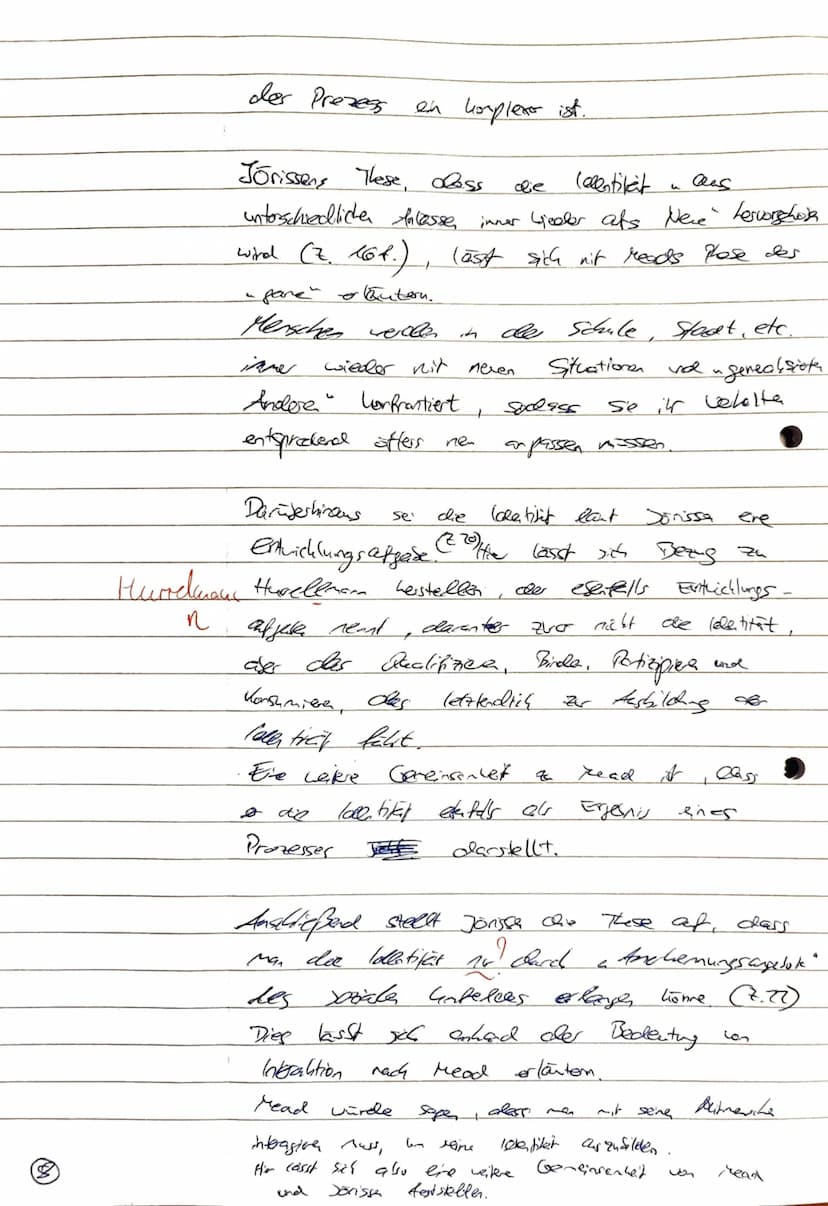 der Prozess ein komplexer ist.
Jörissens These, dass die Identität „aus
unterschiedlichen Anlässen immer wieder als Neue"
wird (Z. 16f.), lässt sich mit Meads Phase des
„game" erläutern.
Menschen werden in der Schule, Stadt, etc.
immer wieder mit neuen Situationen und
Anderen" konfrontiert, sodass sie ihr Verhalten
entsprechend öfters neu anpassen müssen.
Darüberhinaus sei die Identität laut Jörissen eine
Entwicklungsaufgabe. (Z. 20) Hier lässt sich Bezug zu
Hurrelmann
n
herstellen, der ebenfalls Entwicklungs-
aufgaben nennt, darunter zwar nicht die Identität,
aber das Qualifizieren, Binden, Partizipieren und
Konsumieren, das letztendlich zur Ausbildung der
Identität führt.
Eine weitere Gemeinsamkeit zu Mead ist, dass
er die Identität ebenfalls als Ergebnis eines
Prozesses darstellt.
Anschließend stellt Jörissen die These auf, dass
man die Identität nur? durch
des sozialen Umfeldes erlangen könne. (Z. 22)
Dies lässt sich anhand der Bedeutung von
Interaktion nach Mead erläutern.
Mead würde sagen, dass man mit seinen Mitmenschen
interagieren muss, um seine Identität auszubilden.
Hier lässt sich also eine weitere Gemeinsamkeit von Mead
und Jörissen feststellen.
8